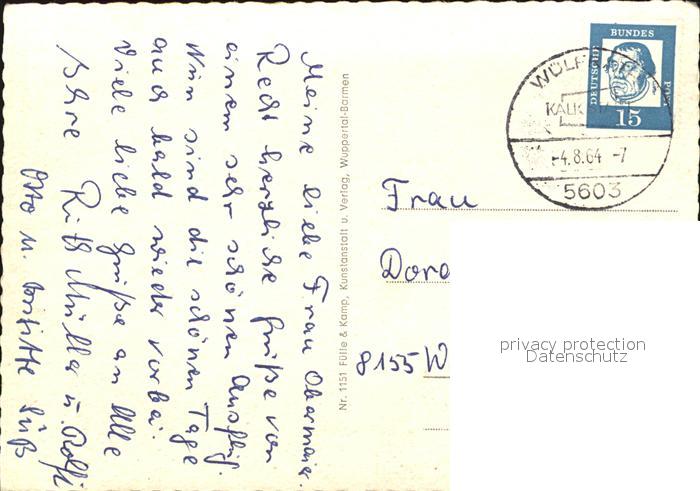 Meine liebe Frau Obermaier.
Recht herzliche Grüße von
einem sehr schönen Ausflug.
Nun sind die schönen Tage
auch bald wieder vorbei.
Viele liebe Grüße an Alle
Ihre
Ruth Müller u. Rolf
Otto u. Süß
Nr. 1151 Fülle & Kamp, Kunstanstalt u. Verlag, Wuppertal-Barmen
DEUTSCHE
BUNDES
POST
15
WÜLF
KALK
-4.8.64 -7
5603
Frau
Doro
8155 W
privacy protection
Datenschutz